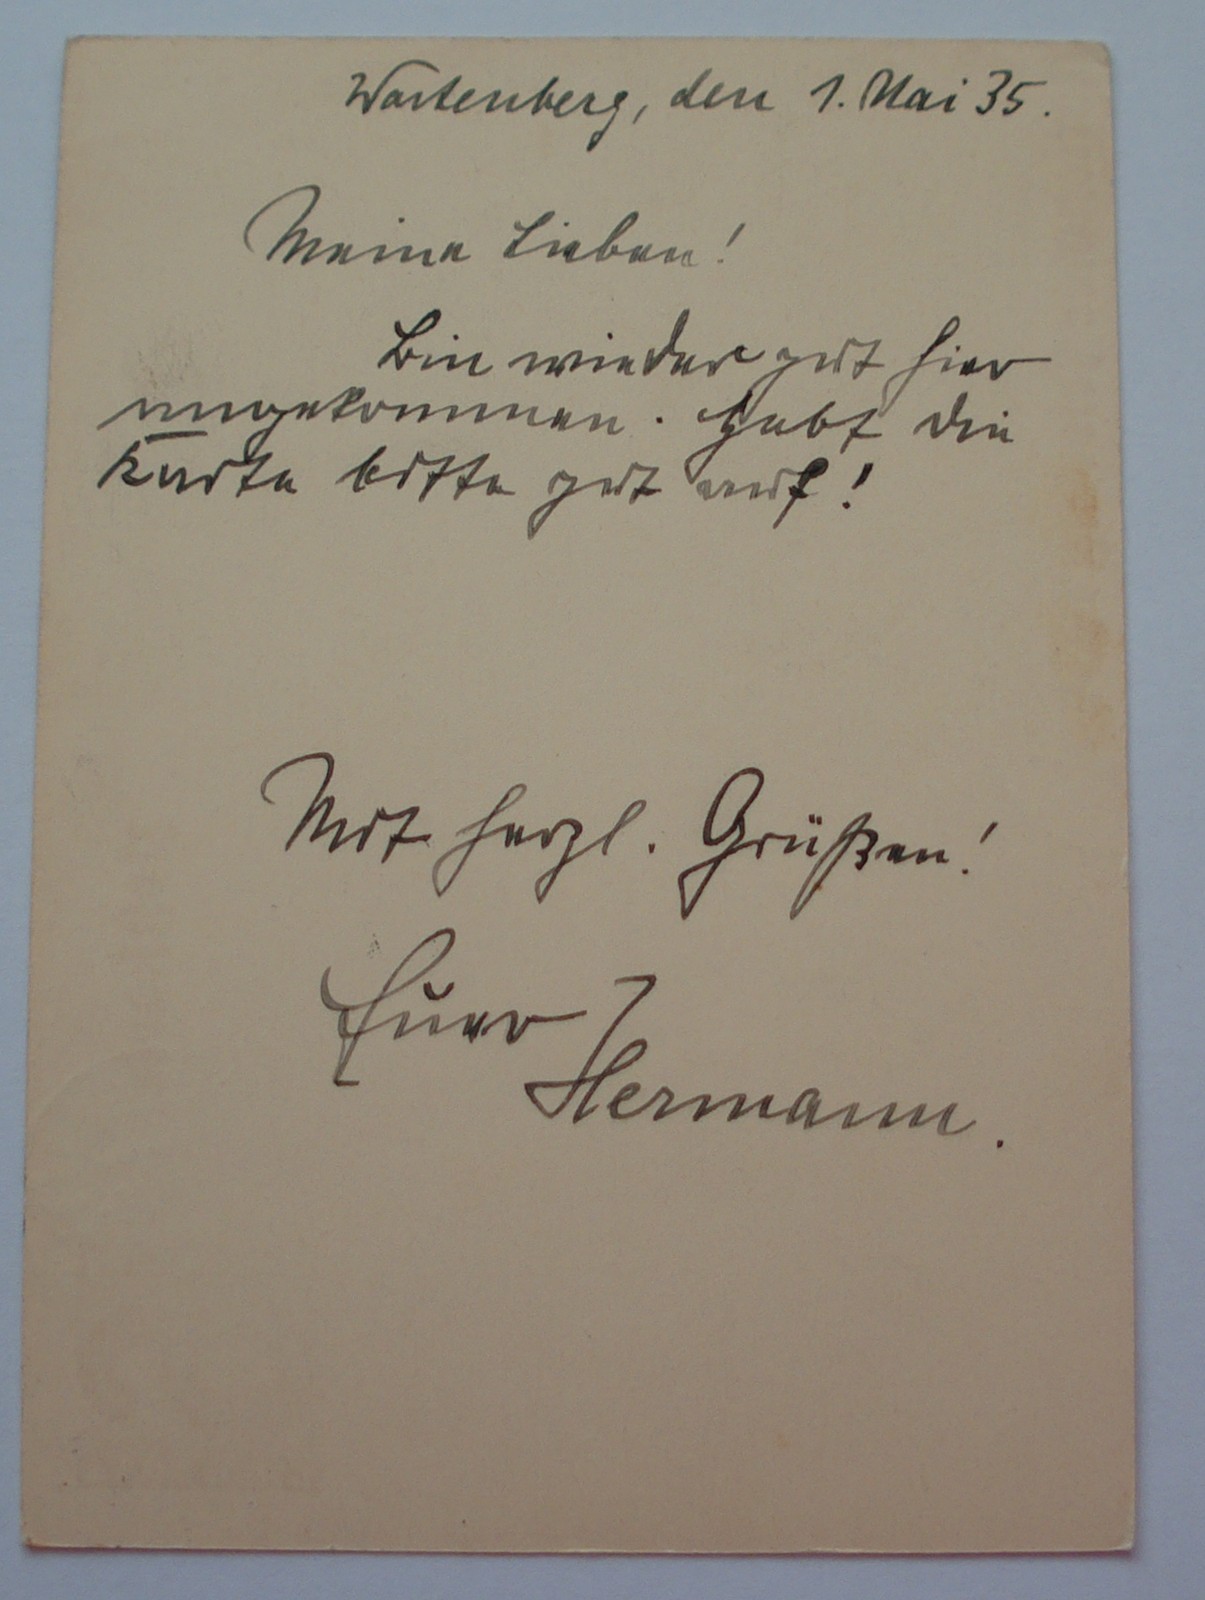 Wartenberg, den 1. Mai 35.
Meine Lieben!
Bin wieder gut hier
angekommen. Hebt die
Karte bitte gut auf!
Mit herzl. Grüßen!
Euer
Hermann.